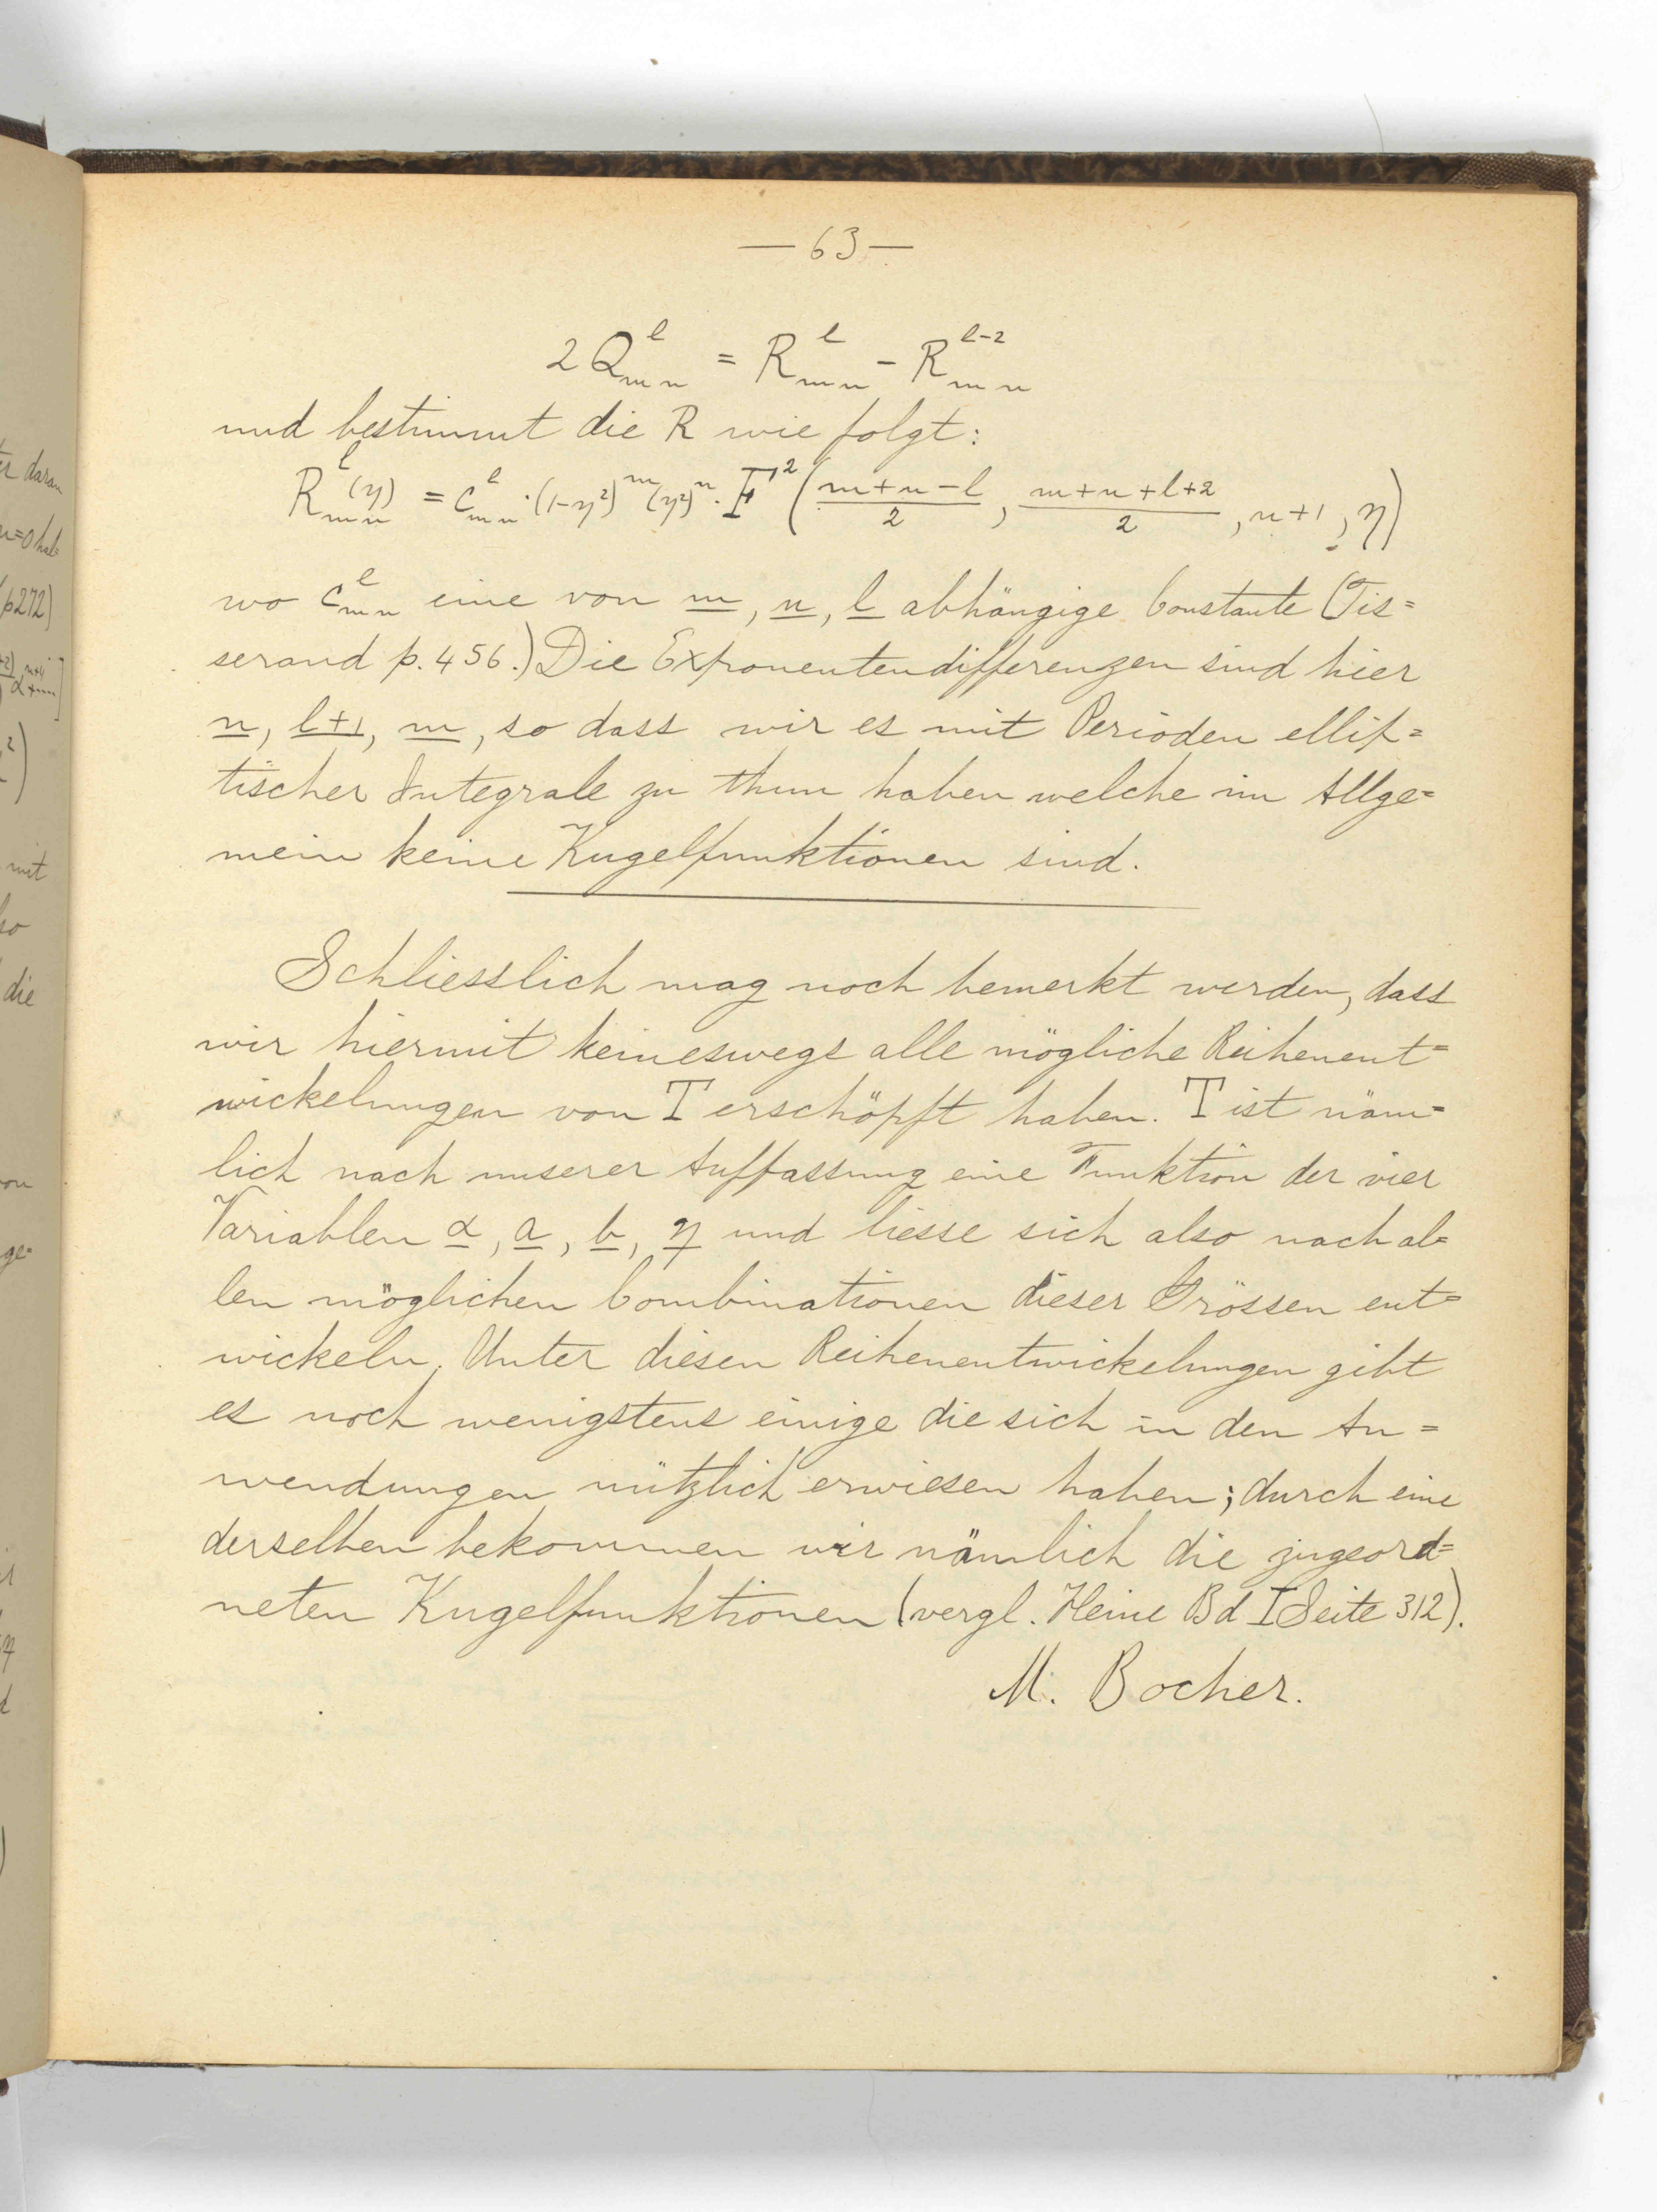 — 63 —
2 Q^l_{mn} = R^l_{mn} - R^{l-2}_{mn}
und bestimmt die R wie folgt:
R^l_{mn}(η) = c^l_{mn} · (1-η²)^m (η²)^n · F² ( (m+n-l)/2 , (m+n+l+2)/2 , n+1 , η )
wo c^l_{mn} eine von m, n, l abhängige Constante (Tis=
serand p. 456.) Die Exponentendifferenzen sind hier
n, l+1, m, so dass wir es mit Perioden ellip=
tischer Integrale zu thun haben welche im Allge=
mein keine Kugelfunktionen sind.
Schliesslich mag noch bemerkt werden, dass
wir hiermit keineswegs alle mögliche Reihenent=
wickelungen von T erschöpft haben. T ist näm=
lich nach unserer Auffassung eine Funktion der vier
Variablen α, a, b, η und liesse sich also nach al=
len möglichen Combinationen dieser Grössen ent=
wickeln. Unter diesen Reihenentwickelungen gibt
es noch wenigstens einige die sich in den An=
wendungen nützlich erwiesen haben; durch eine
derselben bekommen wir nämlich die zugeord=
neten Kugelfunktionen (vergl. Heine Bd I Seite 312).
M. Bocher.